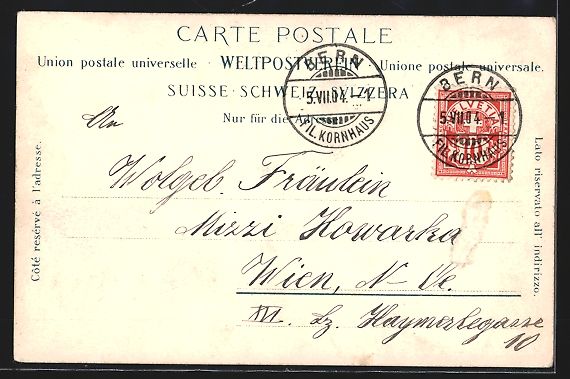 CARTE POSTALE
Union postale universelle · WELTPOSTVEREIN · Unione postale universale.
SUISSE · SCHWEIZ · SVIZZERA
Nur für die
BERN
5.VII.04. - 1
FIL. KORNHAUS
BERN
5.VII.04.
FIL. KORNHAUS
HELVETIA
10
An
Wolgeb. Fräulein
Mizzi Howarka
Wien, N. Oe.
III. Bz. Haymerlegasse
10
Côté réservé à l'adresse.
Lato riservato all' indirizzo.